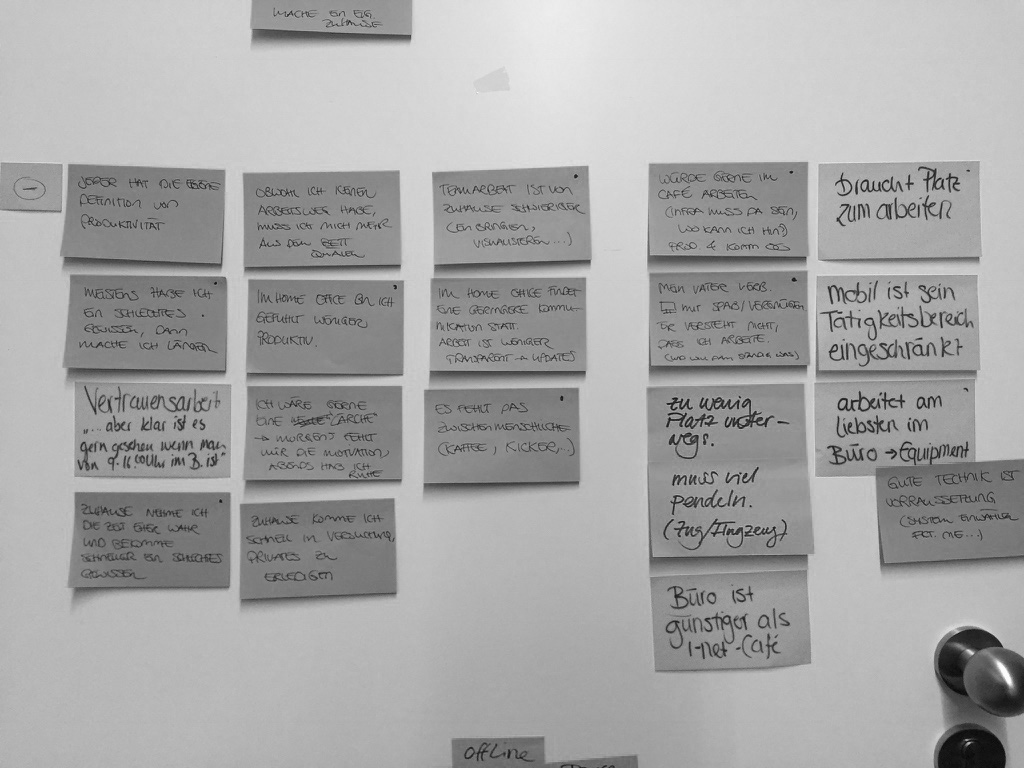 MACHE EIN EIG.
ZUHAUSE
–
JEDER HAT DIE EIGENE
DEFINITION VON
PRODUKTIVITÄT
MEISTENS HABE ICH
EIN SCHLECHTES
GEWISSEN, DANN
MACHE ICH LÄNGER
Vertrauensarbeit
„... aber klar ist es
gern gesehen wenn man
von 9-16:00Uhr im B. ist“
ZUHAUSE NEHME ICH
DIE ZEIT EHER WAHR
UND BEKOMME
SCHNELLER EIN SCHLECHTES
GEWISSEN
OBWOHL ICH KEINEN
ARBEITSWEG HABE,
MUSS ICH MICH MEHR
AUS DEM BETT
QUÄLEN
IM HOME OFFICE BIN ICH
GEFÜHLT WENIGER
PRODUKTIV.
ICH WÄRE GERNE
EINE "LERCHE"
→ MORGENS FEHLT
MIR DIE MOTIVATION,
ABENDS HAB ICH
RUHE
ZUHAUSE KOMME ICH
SCHNELL IN VERSUCHUNG,
PRIVATES ZU
ERLEDIGEN
TEAMARBEIT IST VON
ZUHAUSE SCHWIERIGER
(EINBRINGEN,
VISUALISIEREN...)
IM HOME OFFICE FINDET
EINE GERINGERE KOMMU-
NIKATION STATT.
ARBEIT IST WENIGER
TRANSPARENT → UPDATES
ES FEHLT DAS
ZWISCHENMENSCHLICHE
(KAFFEE, KICKER,...)
WÜRDE GERNE IM
CAFÉ ARBEITEN
(INFRA MUSS DA SEIN,
WO KANN ICH HIN?)
PROD & KOMM
MEIN VATER VERB.
MIT SPAß/VERGNÜGEN
ER VERSTEHT NICHT,
DASS ICH ARBEITE.
zu wenig
Platz unter-
wegs.
muss viel
pendeln.
(Zug/Flugzeug)
Büro ist
günstiger als
I-net-Café
braucht Platz
zum arbeiten
Mobil ist sein
Tätigkeitsbereich
eingeschränkt
arbeitet am
liebsten im
Büro → Equipment
GUTE TECHNIK IST
VORRAUSSETZUNG
(SYSTEM EINWÄHLEN
FKT. NIE...)
Offline